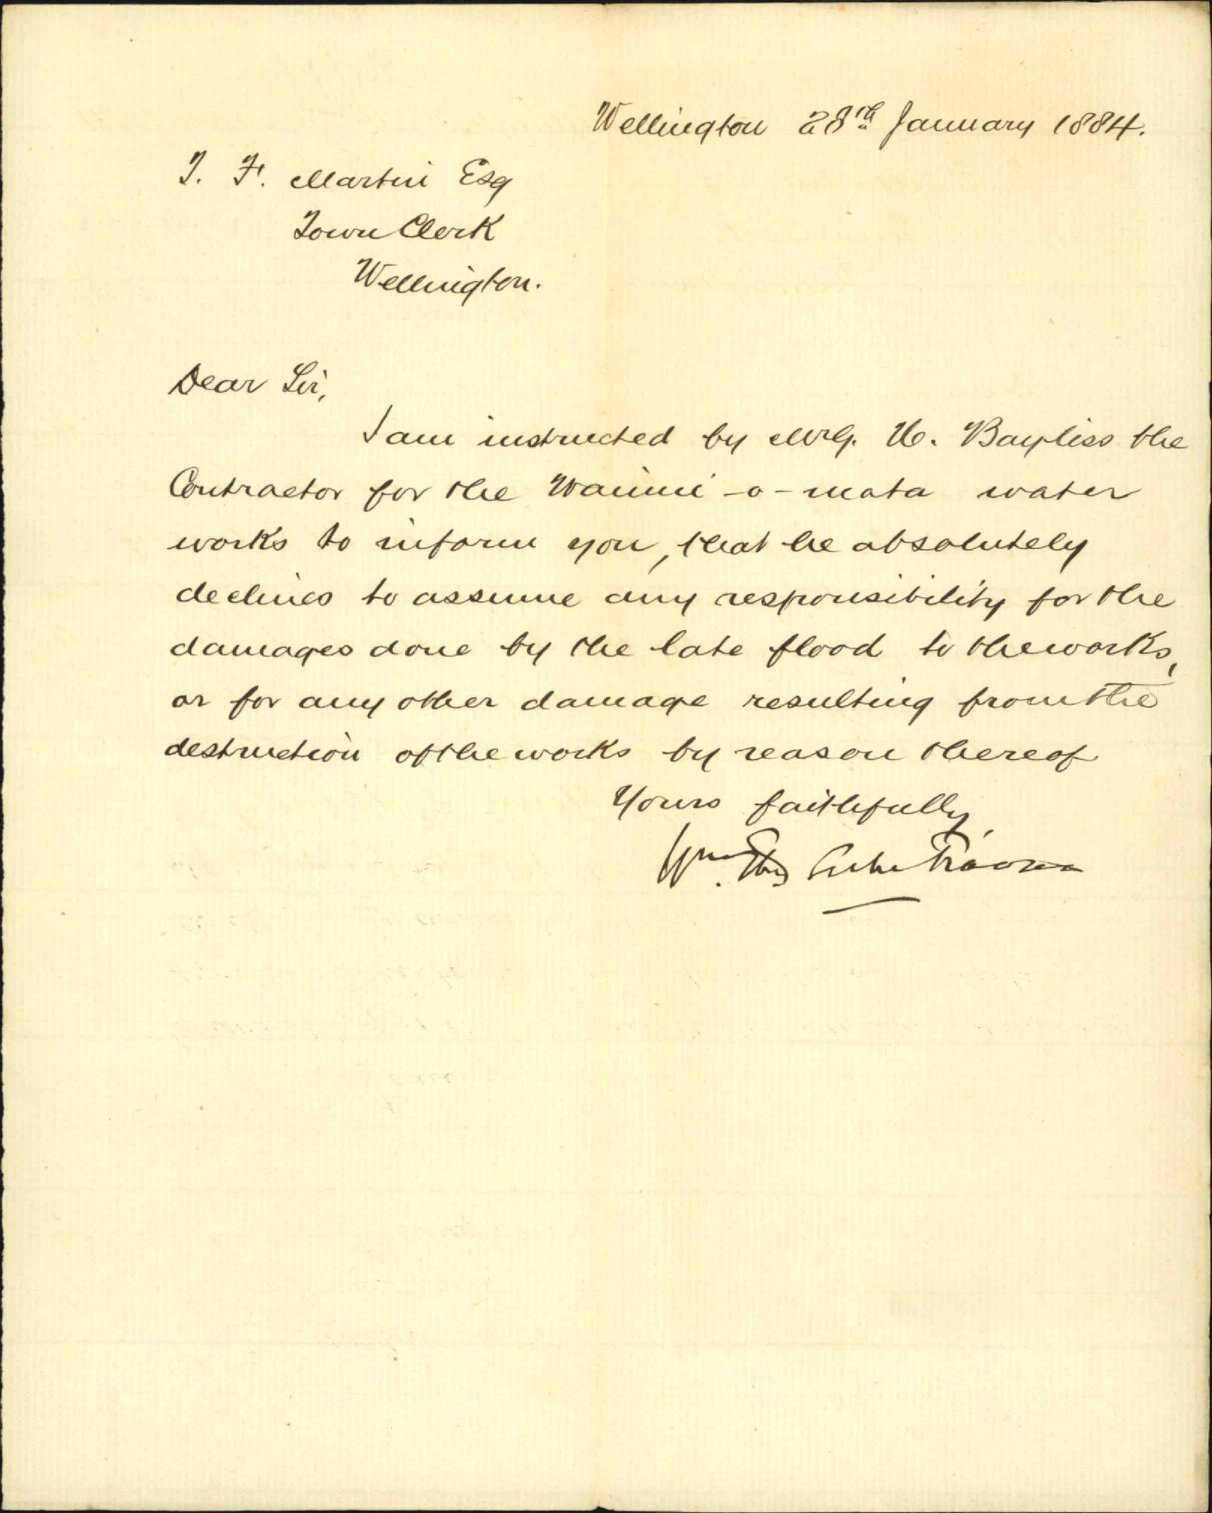 Wellington 28th January 1884.
J. F. Martin Esq
Town Clerk
Wellington.
Dear Sir,
I am instructed by Mr G. H. Bayliss the
Contractor for the Wainui-o-mata water
works to inform you, that he absolutely
declines to assume any responsibility for the
damages done by the late flood to the works,
or for any other damage resulting from the
destruction of the works by reason thereof
Yours faithfully,
Wm. Thos Locke Travers